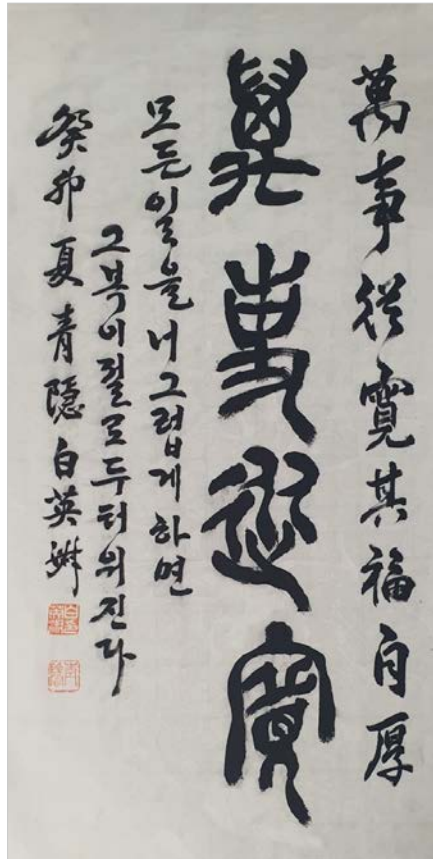 萬事從寬其福自厚
萬事從寬
모든 일을 너그럽게 하면
그 복이 절로 두터워진다
癸卯夏青隱白英